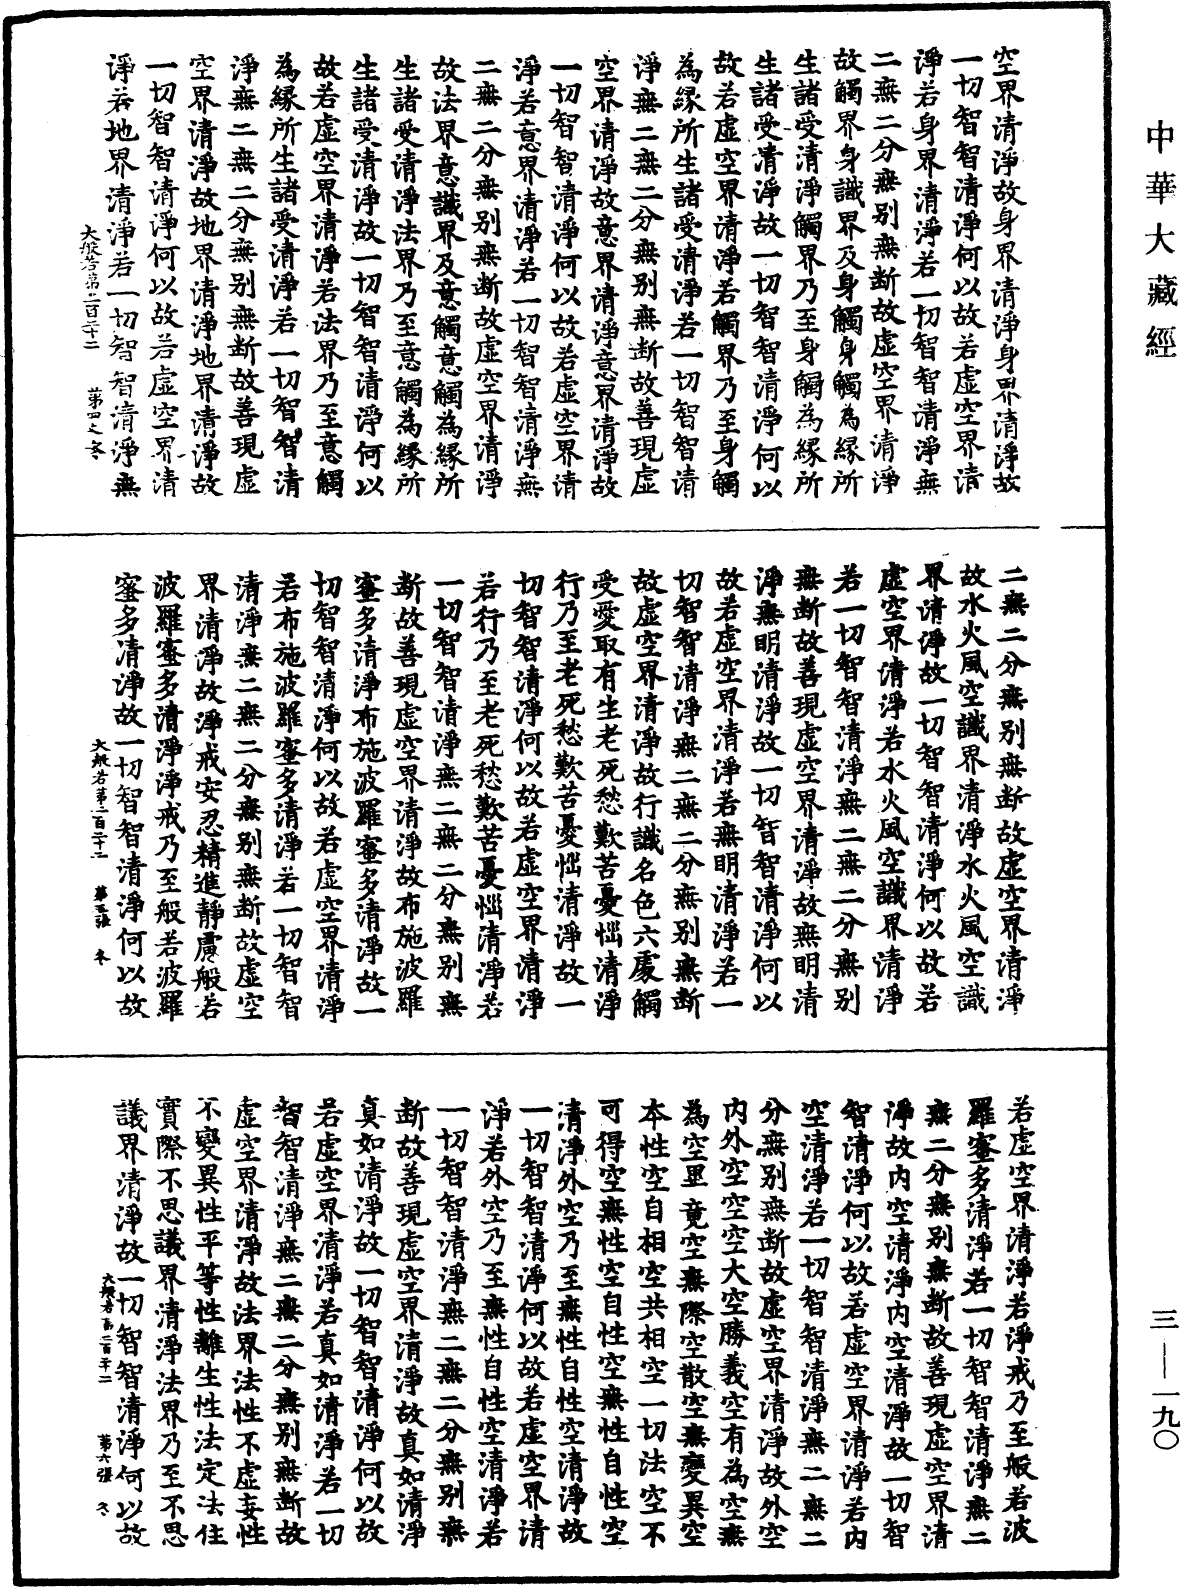 中華大藏經
空界清淨故身界清淨身界清淨故
一切智智清淨何以故若虛空界清
淨若身界清淨若一切智智清淨無
二無二分無別無斷故虛空界清淨
故觸界身識界及身觸身觸為緣所
生諸受清淨觸界乃至身觸為緣所
生諸受清淨故一切智智清淨何以
故若虛空界清淨若觸界乃至身觸
為緣所生諸受清淨若一切智智清
淨無二無二分無別無斷故善現虛
空界清淨故意界清淨意界清淨故
一切智智清淨何以故若虛空界清
淨若意界清淨若一切智智清淨無
二無二分無別無斷故虛空界清淨
故法界意識界及意觸意觸為緣所
生諸受清淨法界乃至意觸為緣所
生諸受清淨故一切智智清淨何以
故若虛空界清淨若法界乃至意觸
為緣所生諸受清淨若一切智智清
淨無二無二分無別無斷故善現虛
空界清淨故地界清淨地界清淨故
一切智智清淨何以故若虛空界清
淨若地界清淨若一切智智清淨無
大般若第二百二十二 第四之 冬
二無二分無別無斷故虛空界清淨
故水火風空識界清淨水火風空識
界清淨故一切智智清淨何以故若
虛空界清淨若水火風空識界清淨
若一切智智清淨無二無二分無別
無斷故善現虛空界清淨故無明清
淨無明清淨故一切智智清淨何以
故若虛空界清淨若無明清淨若一
切智智清淨無二無二分無別無斷
故虛空界清淨故行識名色六處觸
受愛取有生老死愁歎苦憂惱清淨
行乃至老死愁歎苦憂惱清淨故一
切智智清淨何以故若虛空界清淨
若行乃至老死愁歎苦憂惱清淨若
一切智智清淨無二無二分無別無
斷故善現虛空界清淨故布施波羅
蜜多清淨布施波羅蜜多清淨故一
切智智清淨何以故若虛空界清淨
若布施波羅蜜多清淨若一切智智
清淨無二無二分無別無斷故虛空
界清淨故淨戒安忍精進靜慮般若
波羅蜜多清淨淨戒乃至般若波羅
蜜多清淨故一切智智清淨何以故
大般若第二百二十二 第五張 冬
若虛空界清淨若淨戒乃至般若波
羅蜜多清淨若一切智智清淨無二
無二分無別無斷故善現虛空界清
淨故內空清淨內空清淨故一切智
智清淨何以故若虛空界清淨若內
空清淨若一切智智清淨無二無二
分無別無斷故虛空界清淨故外空
內外空空空大空勝義空有為空無
為空畢竟空無際空散空無變異空
本性空自相空共相空一切法空不
可得空無性空自性空無性自性空
清淨外空乃至無性自性空清淨故
一切智智清淨何以故若虛空界清
淨若外空乃至無性自性空清淨若
一切智智清淨無二無二分無別無
斷故善現虛空界清淨故真如清淨
真如清淨故一切智智清淨何以故
若虛空界清淨若真如清淨若一切
智智清淨無二無二分無別無斷故
虛空界清淨故法界法性不虛妄性
不變異性平等性離生性法定法住
實際不思議界清淨法界乃至不思
議界清淨故一切智智清淨何以故
大般若第二百二十二 第六張 冬
三—一九〇